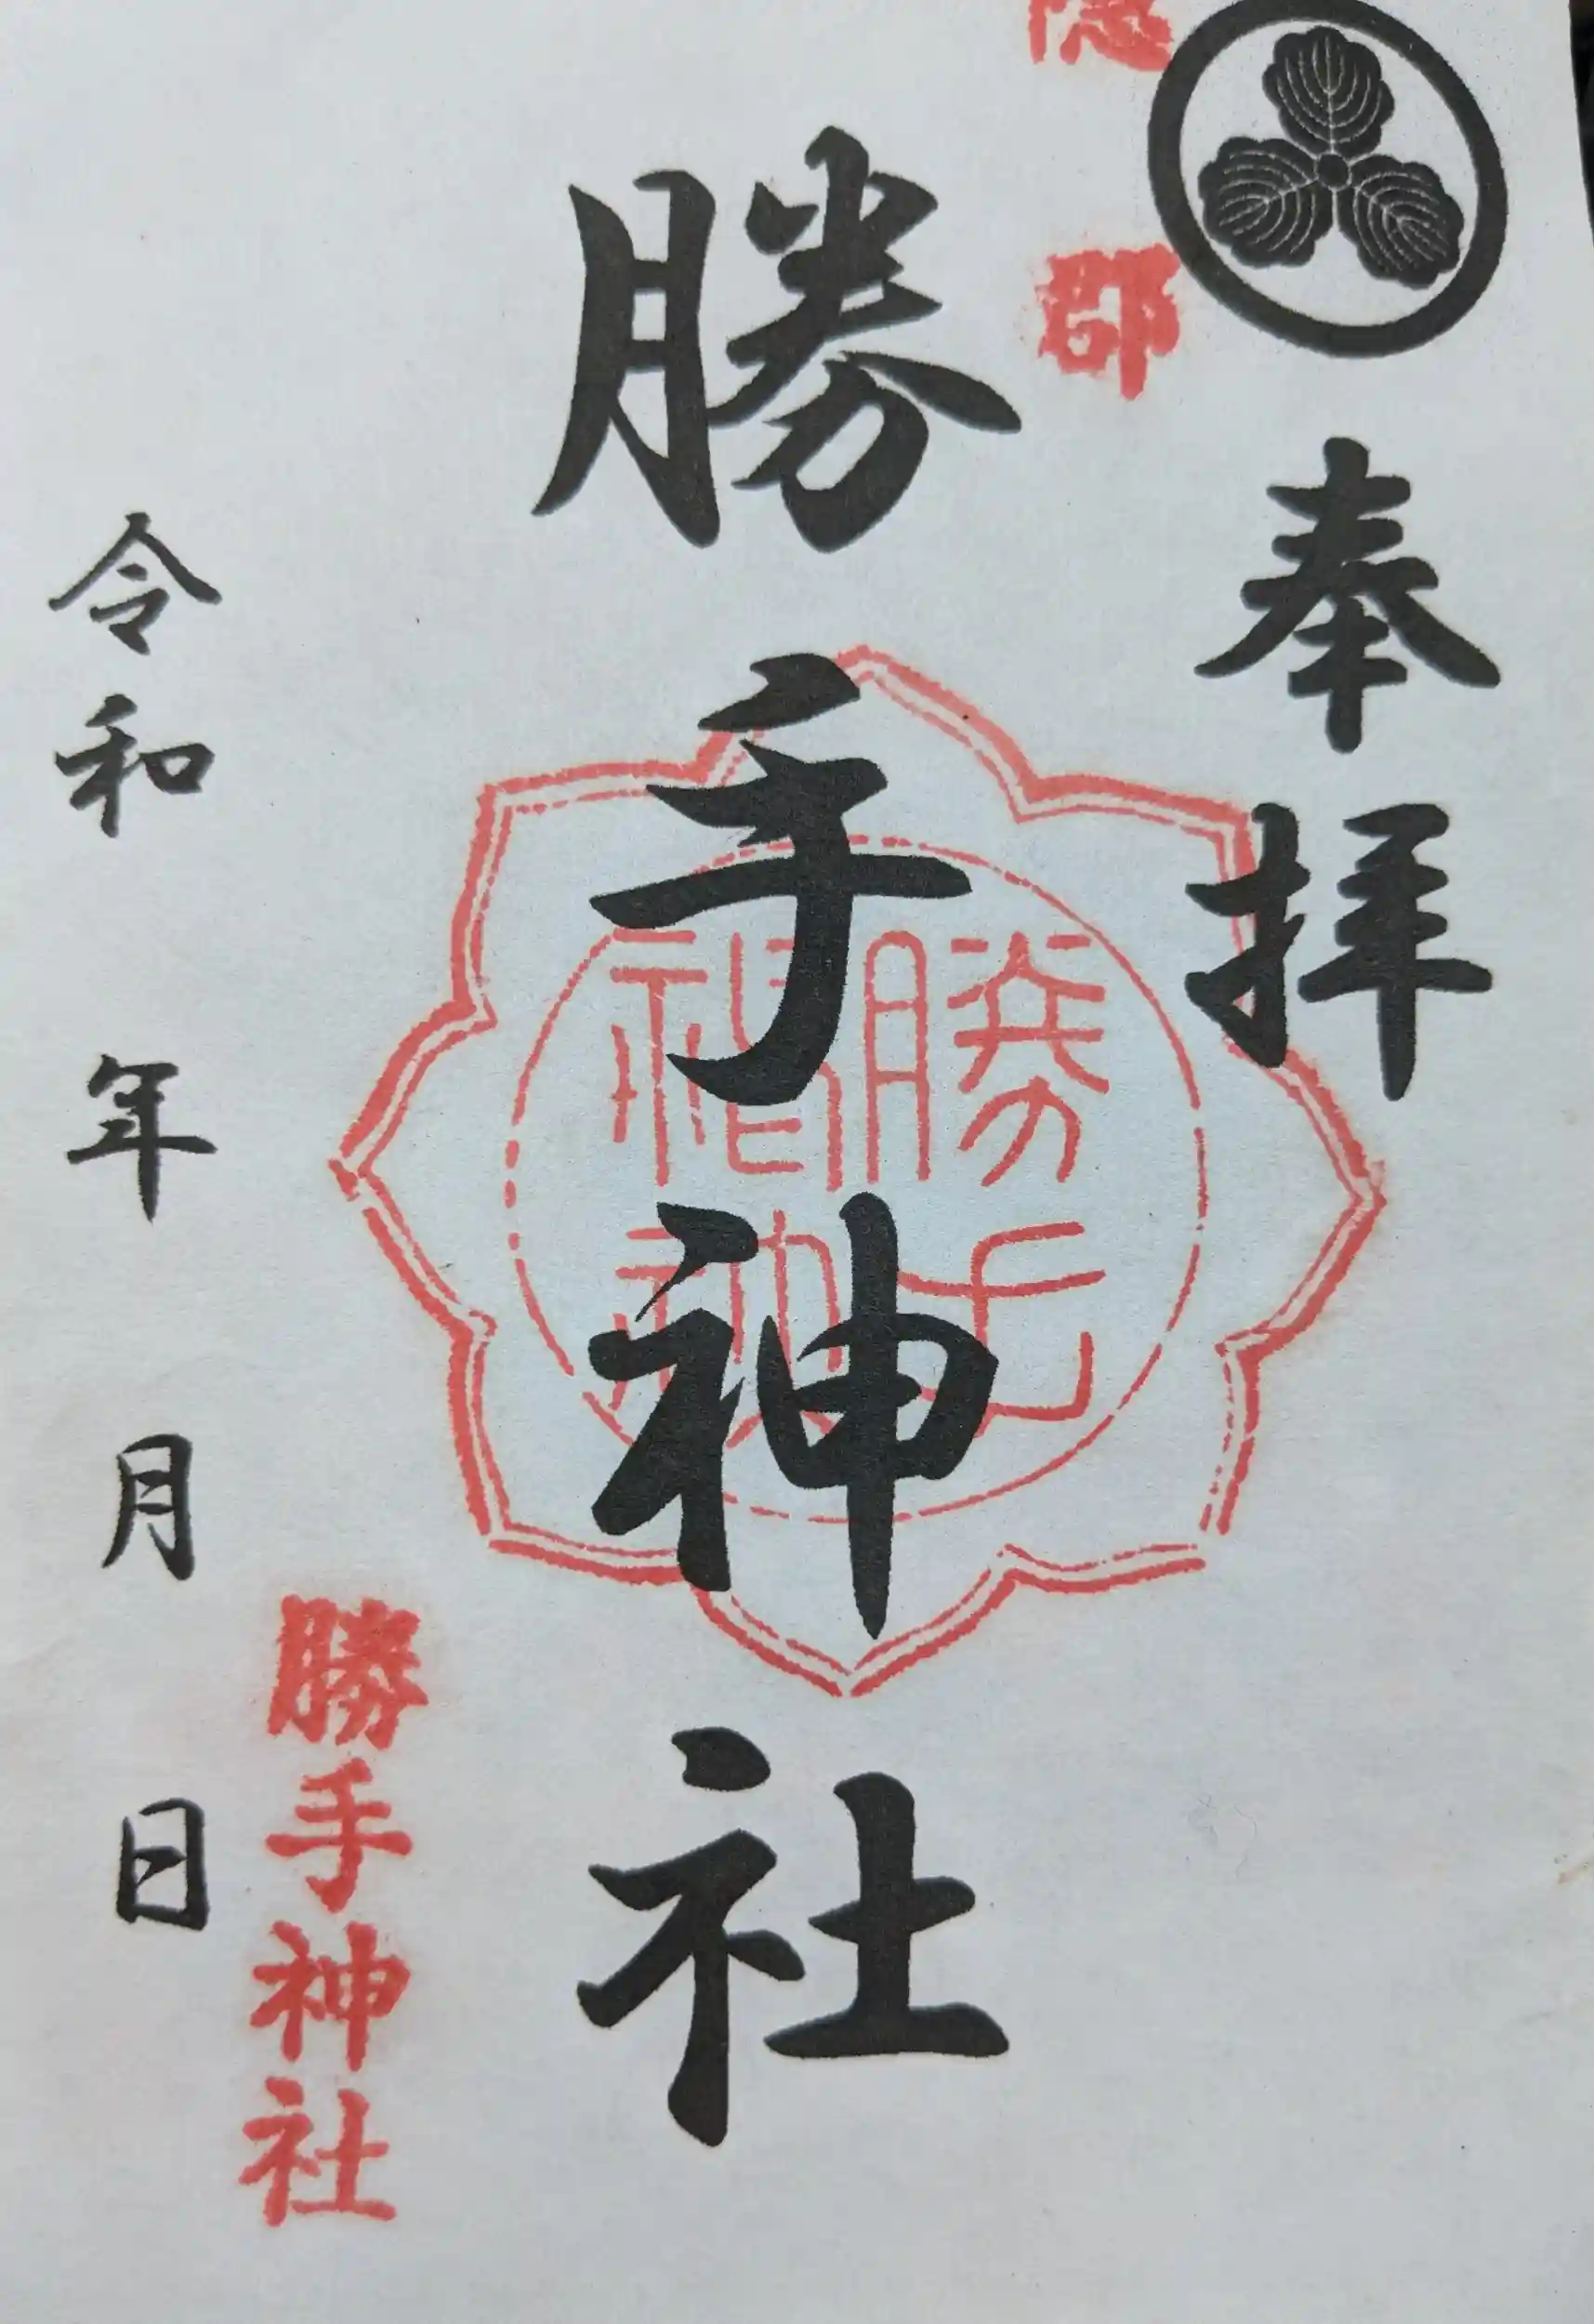 奉拝
隠郡
勝手神社
勝手
神社
勝手神社
令和 年 月 日